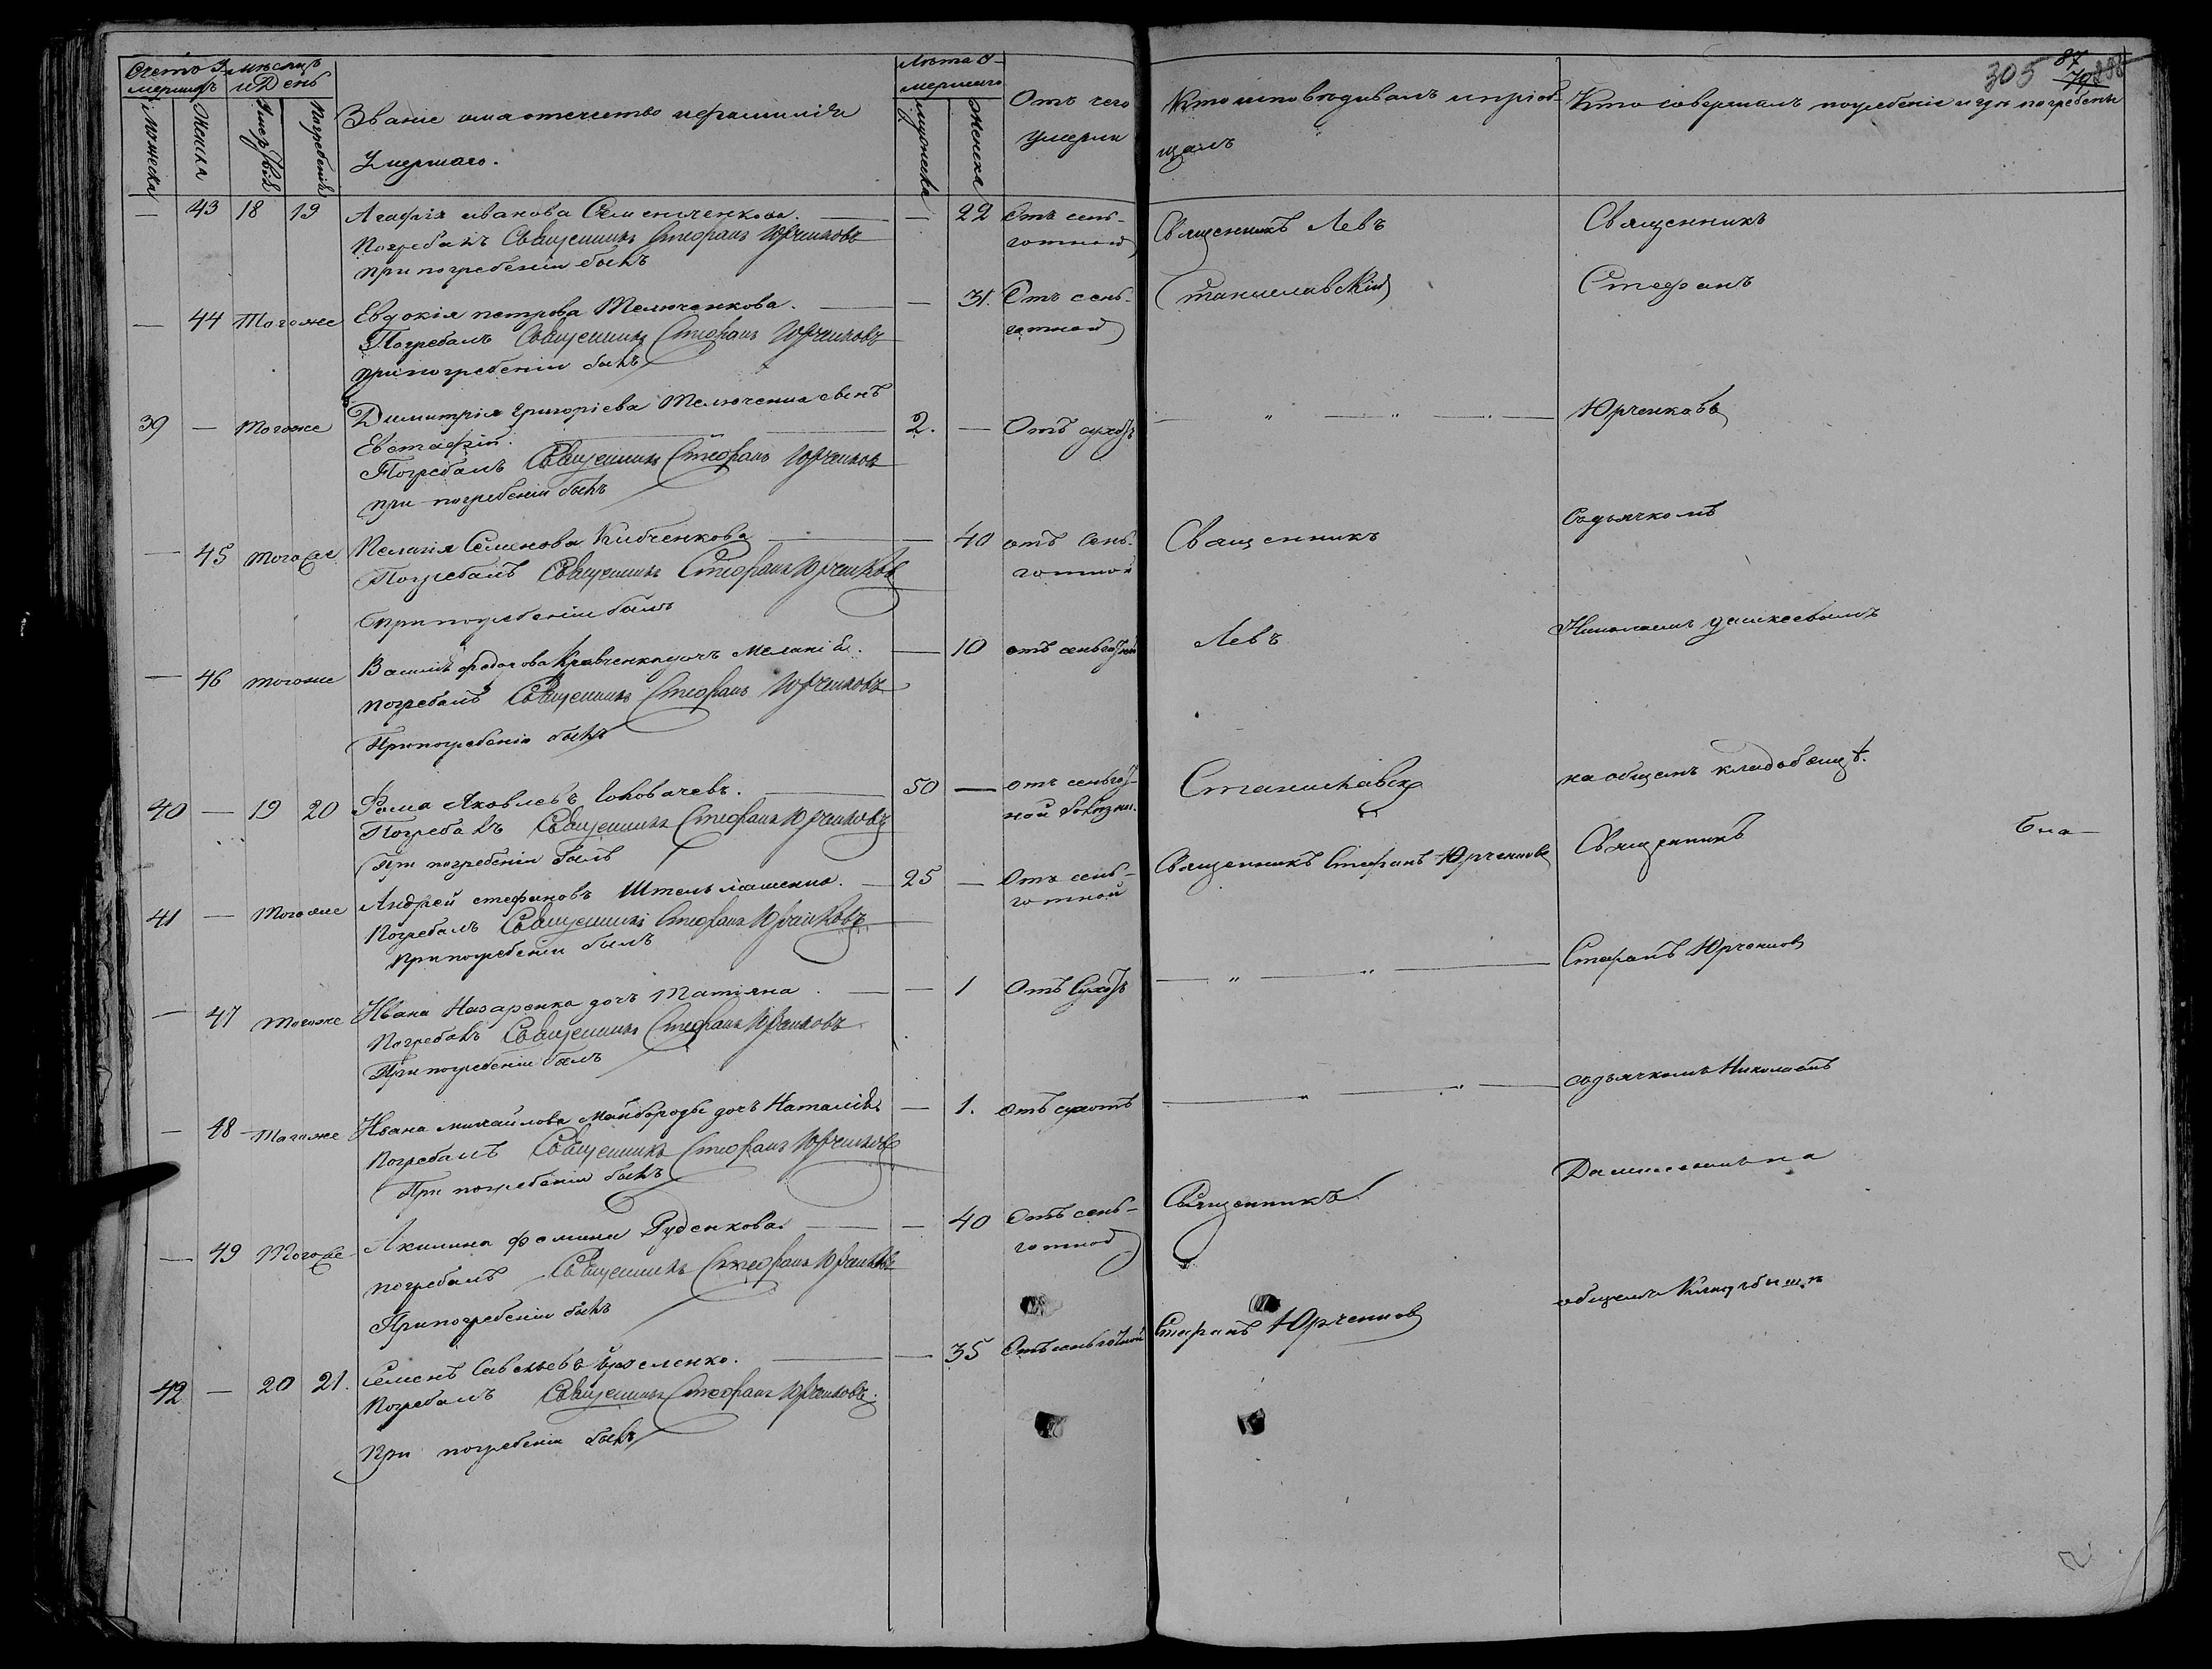 305 87
Счетъ У- Мѣсяцъ
мершихъ и День
Мужеска
Женска
Погребенія
Званіе имя отечество и фамилія
Умершаго.
Лѣта У-
мершаго
Мужеска
Женска
Отъ чего
умерли
Кто исповѣдывалъ и пріоб-
щалъ
Кто совершалъ погребеніе и гдѣ погребены
— 43 18 19 Агафія иванова Семенченкова. — — 22 Отъ сень-
Погребалъ Священникъ Стефанъ Юрченковъ готной
При погребеніи былъ
Священникъ Левъ
Священникъ
— 44 Тогоже Евдокія петрова Телюченкова. — — 31. Отъ сень-
Погребалъ Священникъ Стефанъ Юрченковъ готной
при погребеніи былъ
Станиславскій
Стефанъ
39 — Тогоже Димитрія григоріева Телюченка сынъ
Евстафій. — 2. — Отъ сухотъ
Погребалъ Священникъ Стефанъ Юрченковъ
при погребеніи былъ
— " — " — " —
Юрченковъ
— 45 Тогоже Пелагія Семенова Кибченкова — — 40 отъ сень-
Погребалъ Священникъ Стефанъ Юрченковъ готной
При погребеніи былъ
Священникъ
Содьячкомъ
— 46 тогоже Василія федорова Кравченка дочь Меланія. — 10 отъ сеньготной
погребалъ Священникъ Стефанъ Юрченковъ
При погребеніи былъ
Левъ
Николаемъ
40 — 19 20 Фома Яковлевъ — 50 — отъ сеньгот-
Погребалъ Священникъ Стефанъ Юрченковъ ной болѣзни.
При погребеніи былъ
Станиславск
на общемъ кладобищѣ.
41 — Тогоже Андрей стефановъ Штельмашенко. — 25 — Отъ сень-
Погребалъ Священникъ Стефанъ Юрченковъ готной
При погребеніи былъ
Священникъ Стефанъ Юрченковъ
Священникъ
— 47 Тогоже Ивана Назаренка дочь Татіяна. — — 1 Отъ Сухотъ
Погребалъ Священникъ Стефанъ Юрченковъ
При погребеніи былъ
— " — " —
Стефанъ Юрченков
— 48 Тогоже Ивана михайлова Майбороды дочь Наталія — 1. отъ сухотъ
Погребалъ Священникъ Стефанъ Юрченковъ
При погребеніи былъ
— " — " —
содьячкомъ Николаемъ
— 49 Тогоже Акилина фомина Руденкова — — 40 Отъ сень-
погребалъ Священникъ Стефанъ Юрченковъ готной
При погребеніи былъ
Священникъ
на
42 — 20 21. Семенъ Савельевъ — — 35 Отъ сеньготной
Погребалъ Священникъ Стефанъ Юрченковъ.
При погребеніи былъ
Стефанъ Юрченков
общемъ Кладбищѣ